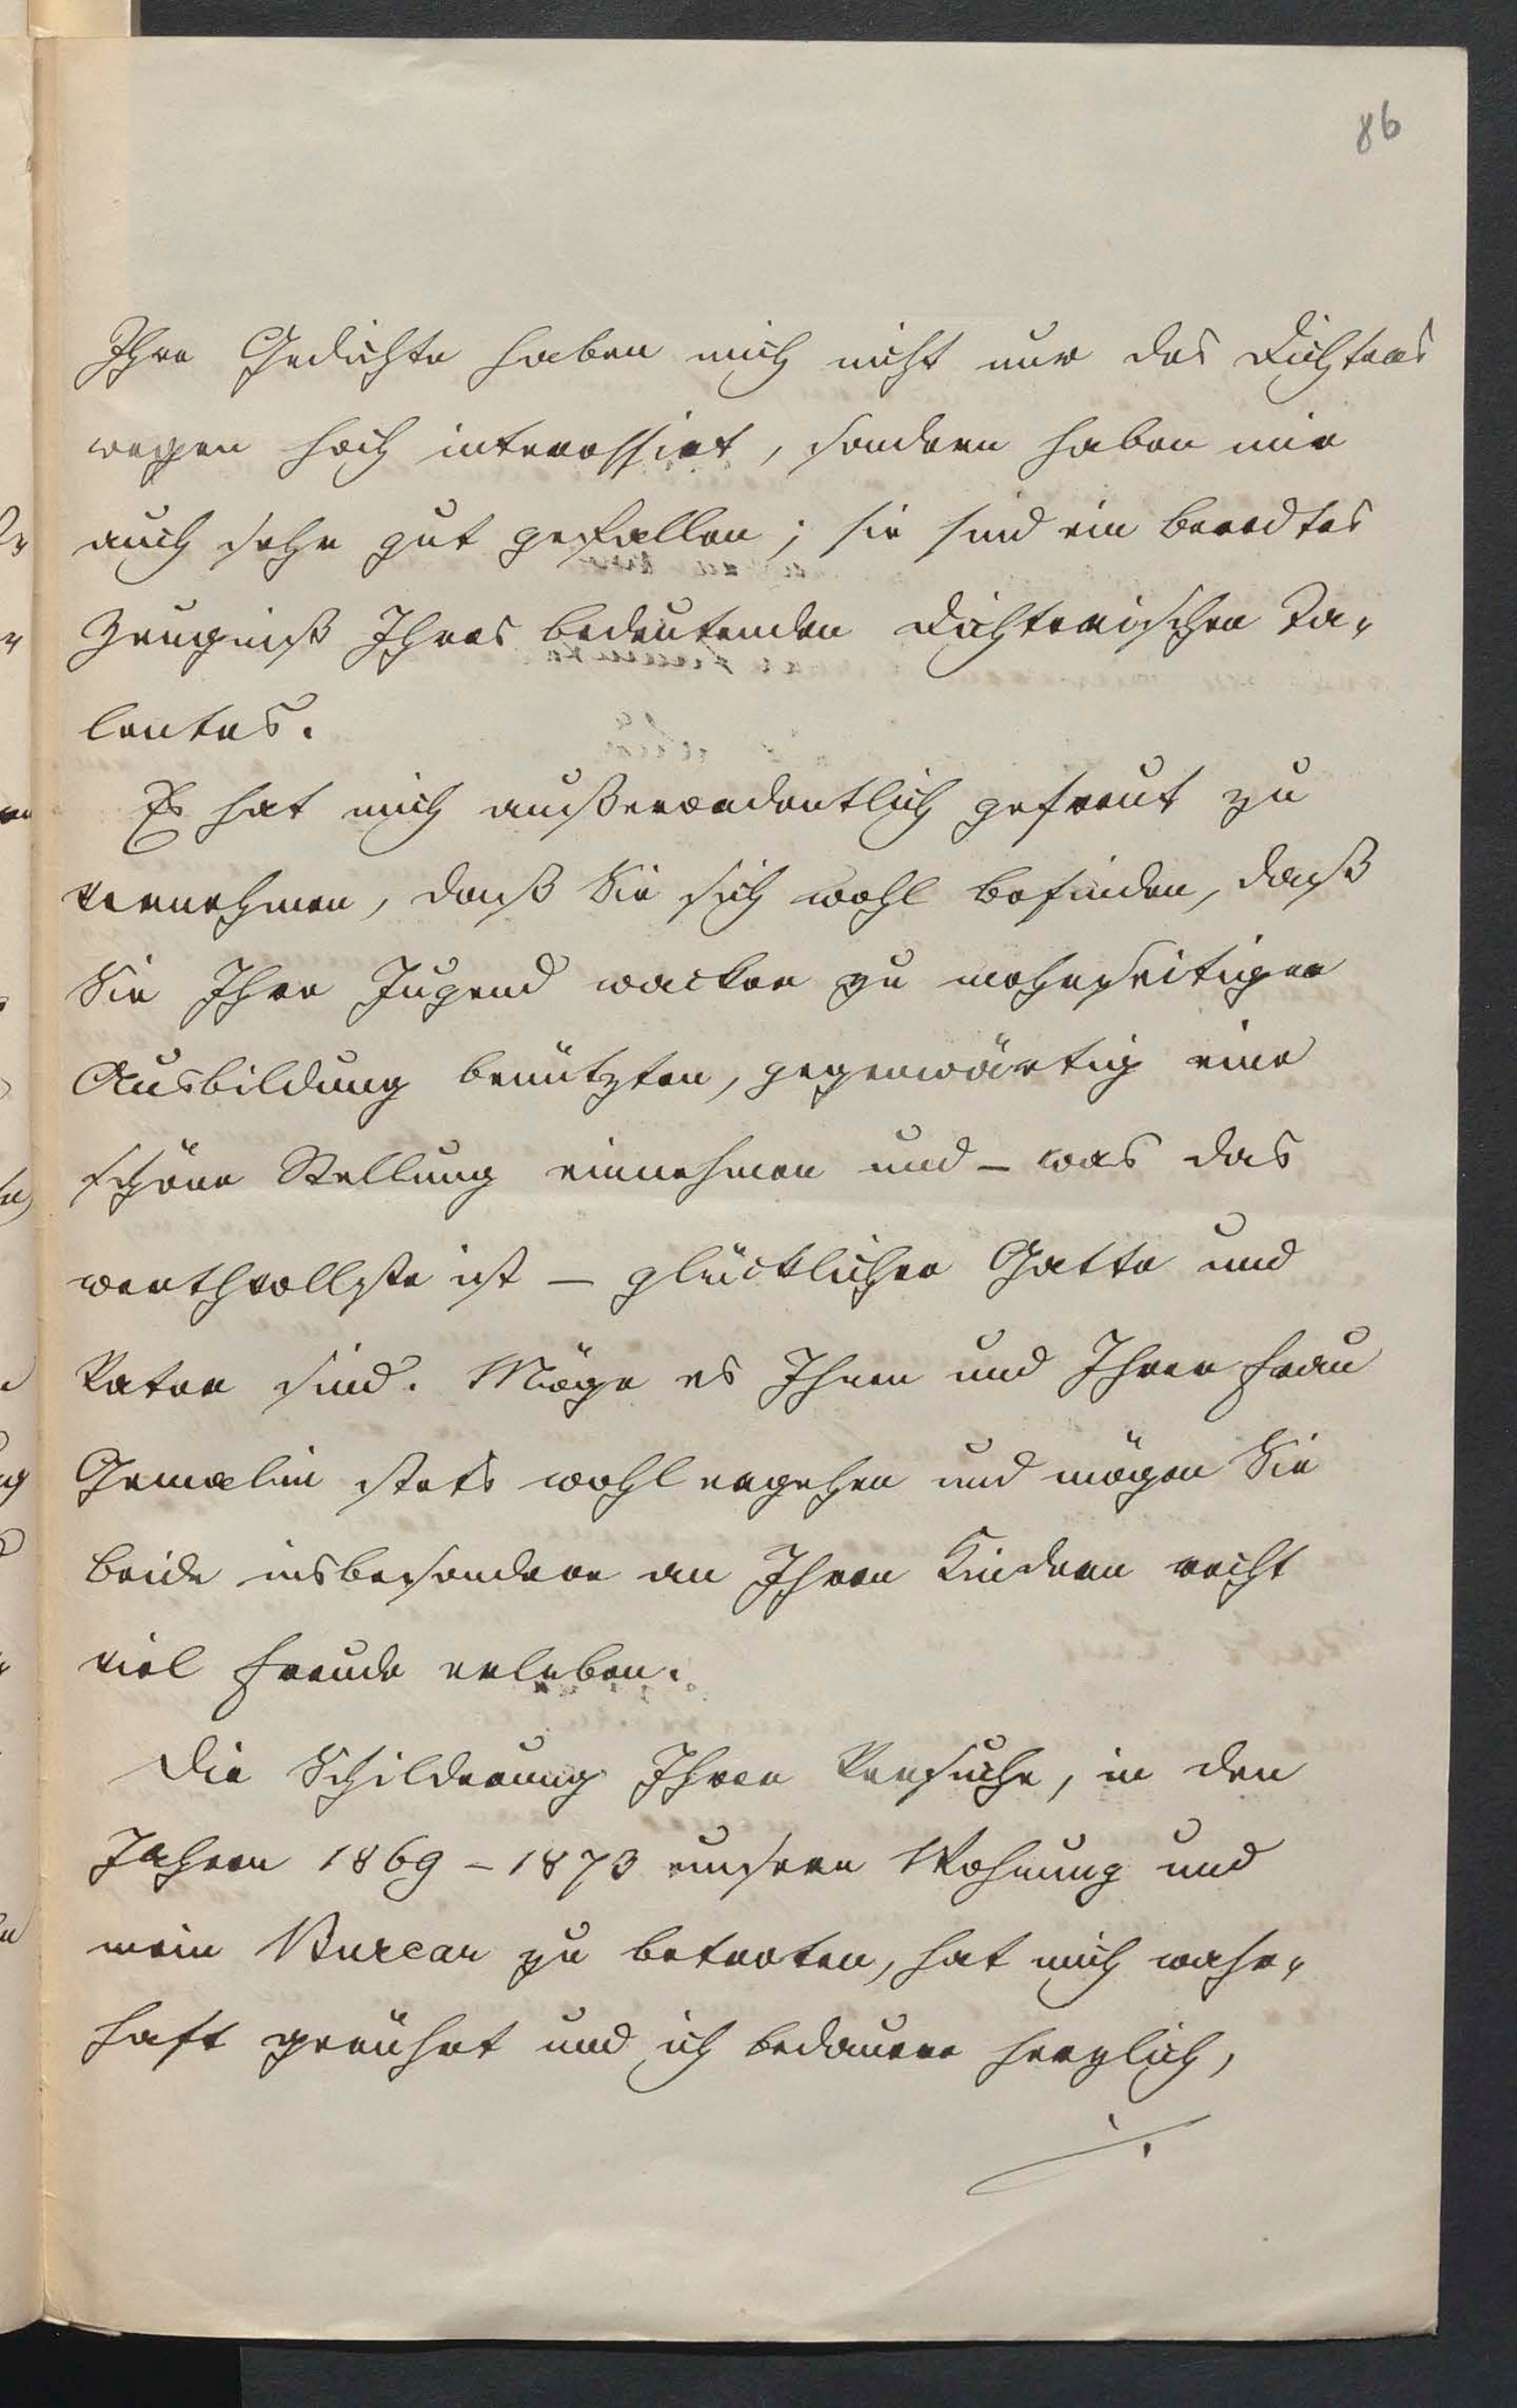 86
Ihre Gedichte haben mich nicht nur des Dichters
wegen hoch interessirt, sondern haben mir
auch sehr gut gefallen; sie sind ein beredtes
Zeugniß Ihres bedeutenden dichterischen Ta-
lentes.
Es hat mich außerordentlich gefreut zu
vernehmen, daß Sie sich wohl befinden, daß
Sie Ihre Jugend wacker zu mehrseitiger
Ausbildung benützten, gegenwärtig eine
schöne Stellung einnehmen und – was das
werthvollste ist – glücklicher Gatte und
Vater sind. Möge es Ihnen und Ihrer Frau
Gemalin stets wohl ergehen und mögen Sie
beide insbesondere an Ihren Kindern recht
viel Freude erleben.
Die Schilderung Ihrer Versuche, in den
Jahren 1869 – 1873 unsere Wohnung und
mein Bureau zu betreten, hat mich wahr-
haft gerührt und ich bedauere herzlich,
./.